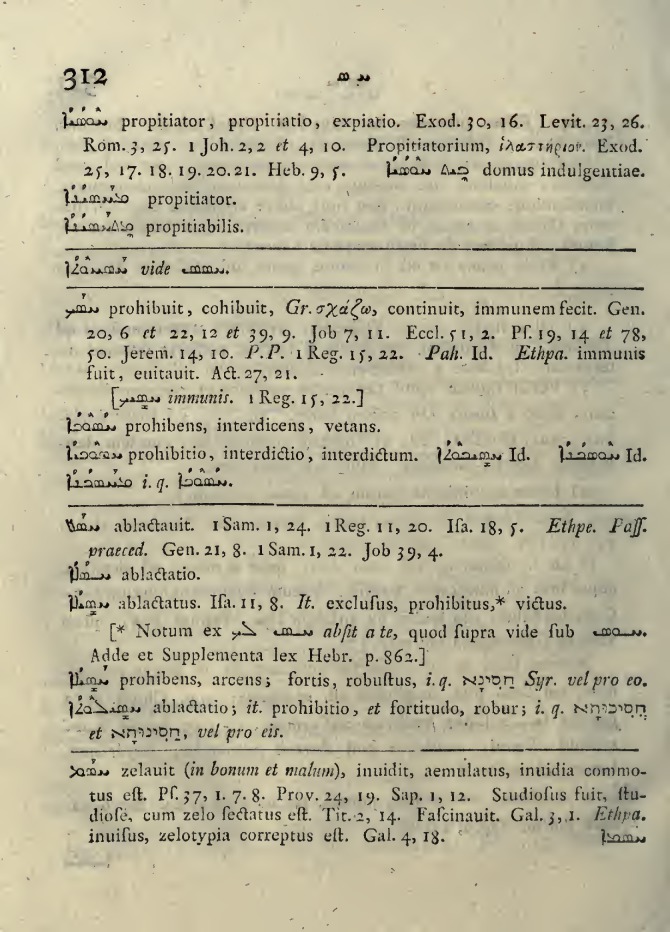 312 ܚ ܣ
ܚܘܣܝܐ propitiator, propitiatio, expiatio. Exod. 30, 16. Levit. 23, 26.
Rom. 3, 25. 1 Joh. 2, 2 et 4, 10. Propitiatorium, ἱλαστήριον. Exod.
25, 17. 18. 19. 20. 21. Heb. 9, 5. ܒܝܬ ܚܘܣܝܐ domus indulgentiae.
ܡܚܣܝܢܐ propitiator.
ܡܬܚܣܝܢܐ propitiabilis.
vide
ܚܣܟ prohibuit, cohibuit, Gr. σχάζω, continuit, immunem fecit. Gen.
20, 6 et 22, 12 et 39, 9. Job 7, 11. Eccl. 51, 2. Pſ. 19, 14 et 78,
50. Jerem. 14, 10. P. P. 1 Reg. 15, 22. Pah. Id. Ethpa. immunis
fuit, euitauit. Act. 27, 21.
[ܚܣܝܟ immunis. 1 Reg. 15, 22.]
ܚܣܘܟܐ prohibens, interdicens, vetans.
prohibitio, interdictio, interdictum. ܚܣܝܟܘܬܐ Id. Id.
ܡܚܣܟܢܐ i. q. ܚܣܘܟܐ.
ܚܣܠ ablactauit. 1 Sam. 1, 24. 1 Reg. 11, 20. Iſa. 18, 5. Ethpe. Paſſ.
praeced. Gen. 21, 8. 1 Sam. 1, 22. Job 39, 4.
ܚܣܠܐ ablactatio.
ܚܣܝܠܐ ablactatus. Iſa. 11, 8. It. excluſus, prohibitus,* victus.
[* Notum ex ܚܣ ܠܟ abſit a te, quod ſupra vide ſub ܚܘܣ.
Adde et Supplementa lex Hebr. p. 862.]
ܚܣܝܠܐ prohibens, arcens; fortis, robuſtus, i. q. חֲסִינָא Syr. vel pro eo.
ܚܣܝܠܘܬܐ ablactatio; it. prohibitio, et fortitudo, robur; i. q. חסינותא
et חסינותא, vel pro eis.
ܚܣܡ zelauit (in bonum et malum), inuidit, aemulatus, inuidia commo-
tus eſt. Pſ. 37, 1. 7. 8. Prov. 24, 19. Sap. 1, 12. Studioſus fuit, ſtu-
dioſe, cum zelo ſectatus eſt. Tit. 2, 14. Faſcinauit. Gal. 3, 1. Ethpa.
inuiſus, zelotypia correptus eſt. Gal. 4, 18. ܚܣܡܐ